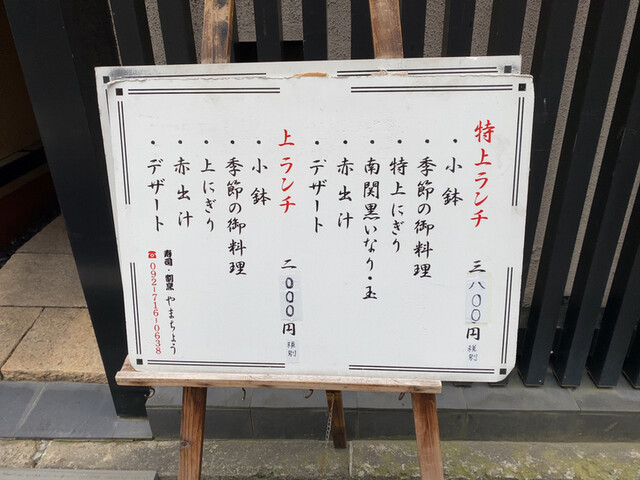 特上ランチ 三八〇〇円 税別
・小鉢
・季節の御料理
・特上にぎり
・南関黒いなり・玉
・赤出汁
・デザート
上ランチ 二〇〇〇円 税別
・小鉢
・季節の御料理
・上にぎり
・赤出汁
・デザート
寿司・割烹 やまちょう
☎092-716-0638